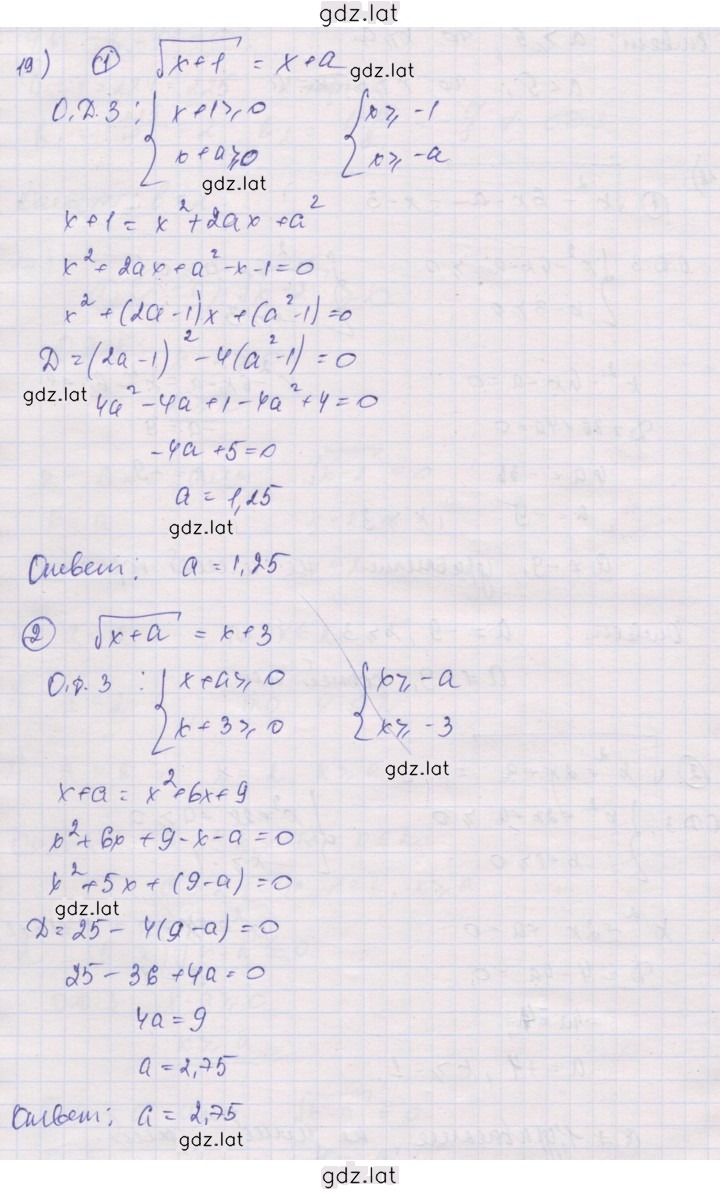 gdz.lat
19) ① √x+1 = x+a
gdz.lat
О.Д.З: { x+1≥0 { x≥ -1
x+a≥0 x≥ -a
gdz.lat
x+1 = x²+2ax+a²
x²+2ax+a²-x-1=0
x²+(2a-1)x+(a²-1)=0
Д=(2a-1)²-4(a²-1)=0
gdz.lat
4a²-4a+1-4a²+4=0
-4a+5=0
a=1,25
gdz.lat
Ответ: a=1,25
② √x+a = x+3
О.Д.З: { x+a≥0 { x≥ -a
x+3≥0 x≥ -3
gdz.lat
x+a = x²+6x+9
x²+6x+9-x-a=0
x²+5x+(9-a)=0
gdz.lat
Д=25-4(9-a)=0
25-36+4a=0
4a=9
a=2,75
Ответ: a=2,75
gdz.lat
gdz.lat